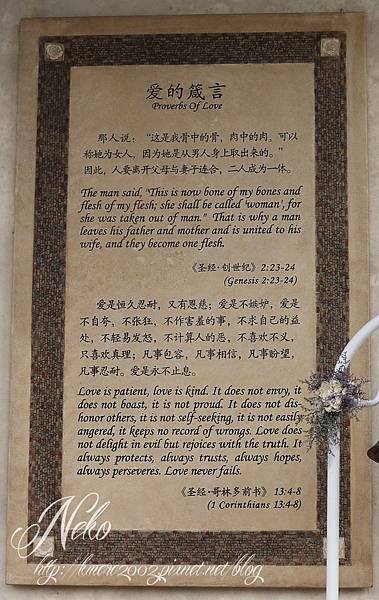 爱的箴言
Proverbs Of Love
那人说：“这是我骨中的骨，肉中的肉，可以
称她为女人，因为她是从男人身上取出来的。”
因此，人要离开父母与妻子连合，二人成为一体。
The man said, "This is now bone of my bones and
flesh of my flesh; she shall be called 'woman', for
she was taken out of man." That is why a man
leaves his father and mother and is united to his
wife, and they become one flesh.
《圣经·创世纪》2:23-24
(Genesis 2:23-24)
爱是恒久忍耐，又有恩慈；爱是不嫉妒，爱是
不自夸，不张狂，不作害羞的事，不求自己的益
处，不轻易发怒，不计算人的恶，不喜欢不义，
只喜欢真理；凡事包容，凡事相信，凡事盼望，
凡事忍耐。爱是永不止息。
Love is patient, love is kind. It does not envy, it
does not boast, it is not proud. It does not dis-
honor others, it is not self-seeking, it is not easily
angered, it keeps no record of wrongs. Love does
not delight in evil but rejoices with the truth. It
always protects, always trusts, always hopes,
always perseveres. Love never fails.
《圣经·哥林多前书》13:4-8
(1 Corinthians 13:4-8)
Neko
http://kmere2002.pixnet.net/blog